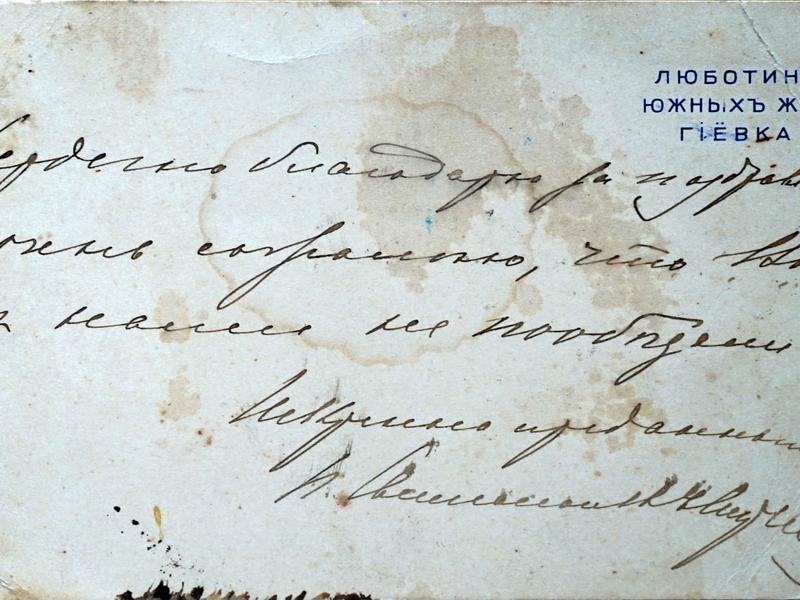 ЛЮБОТИН
ЮЖНЫХЪ Ж
ГІЁВКА
ердечно благодарю за поздрав
очень сожалею, что Вы
с нами не пообедали
Искренно преданный